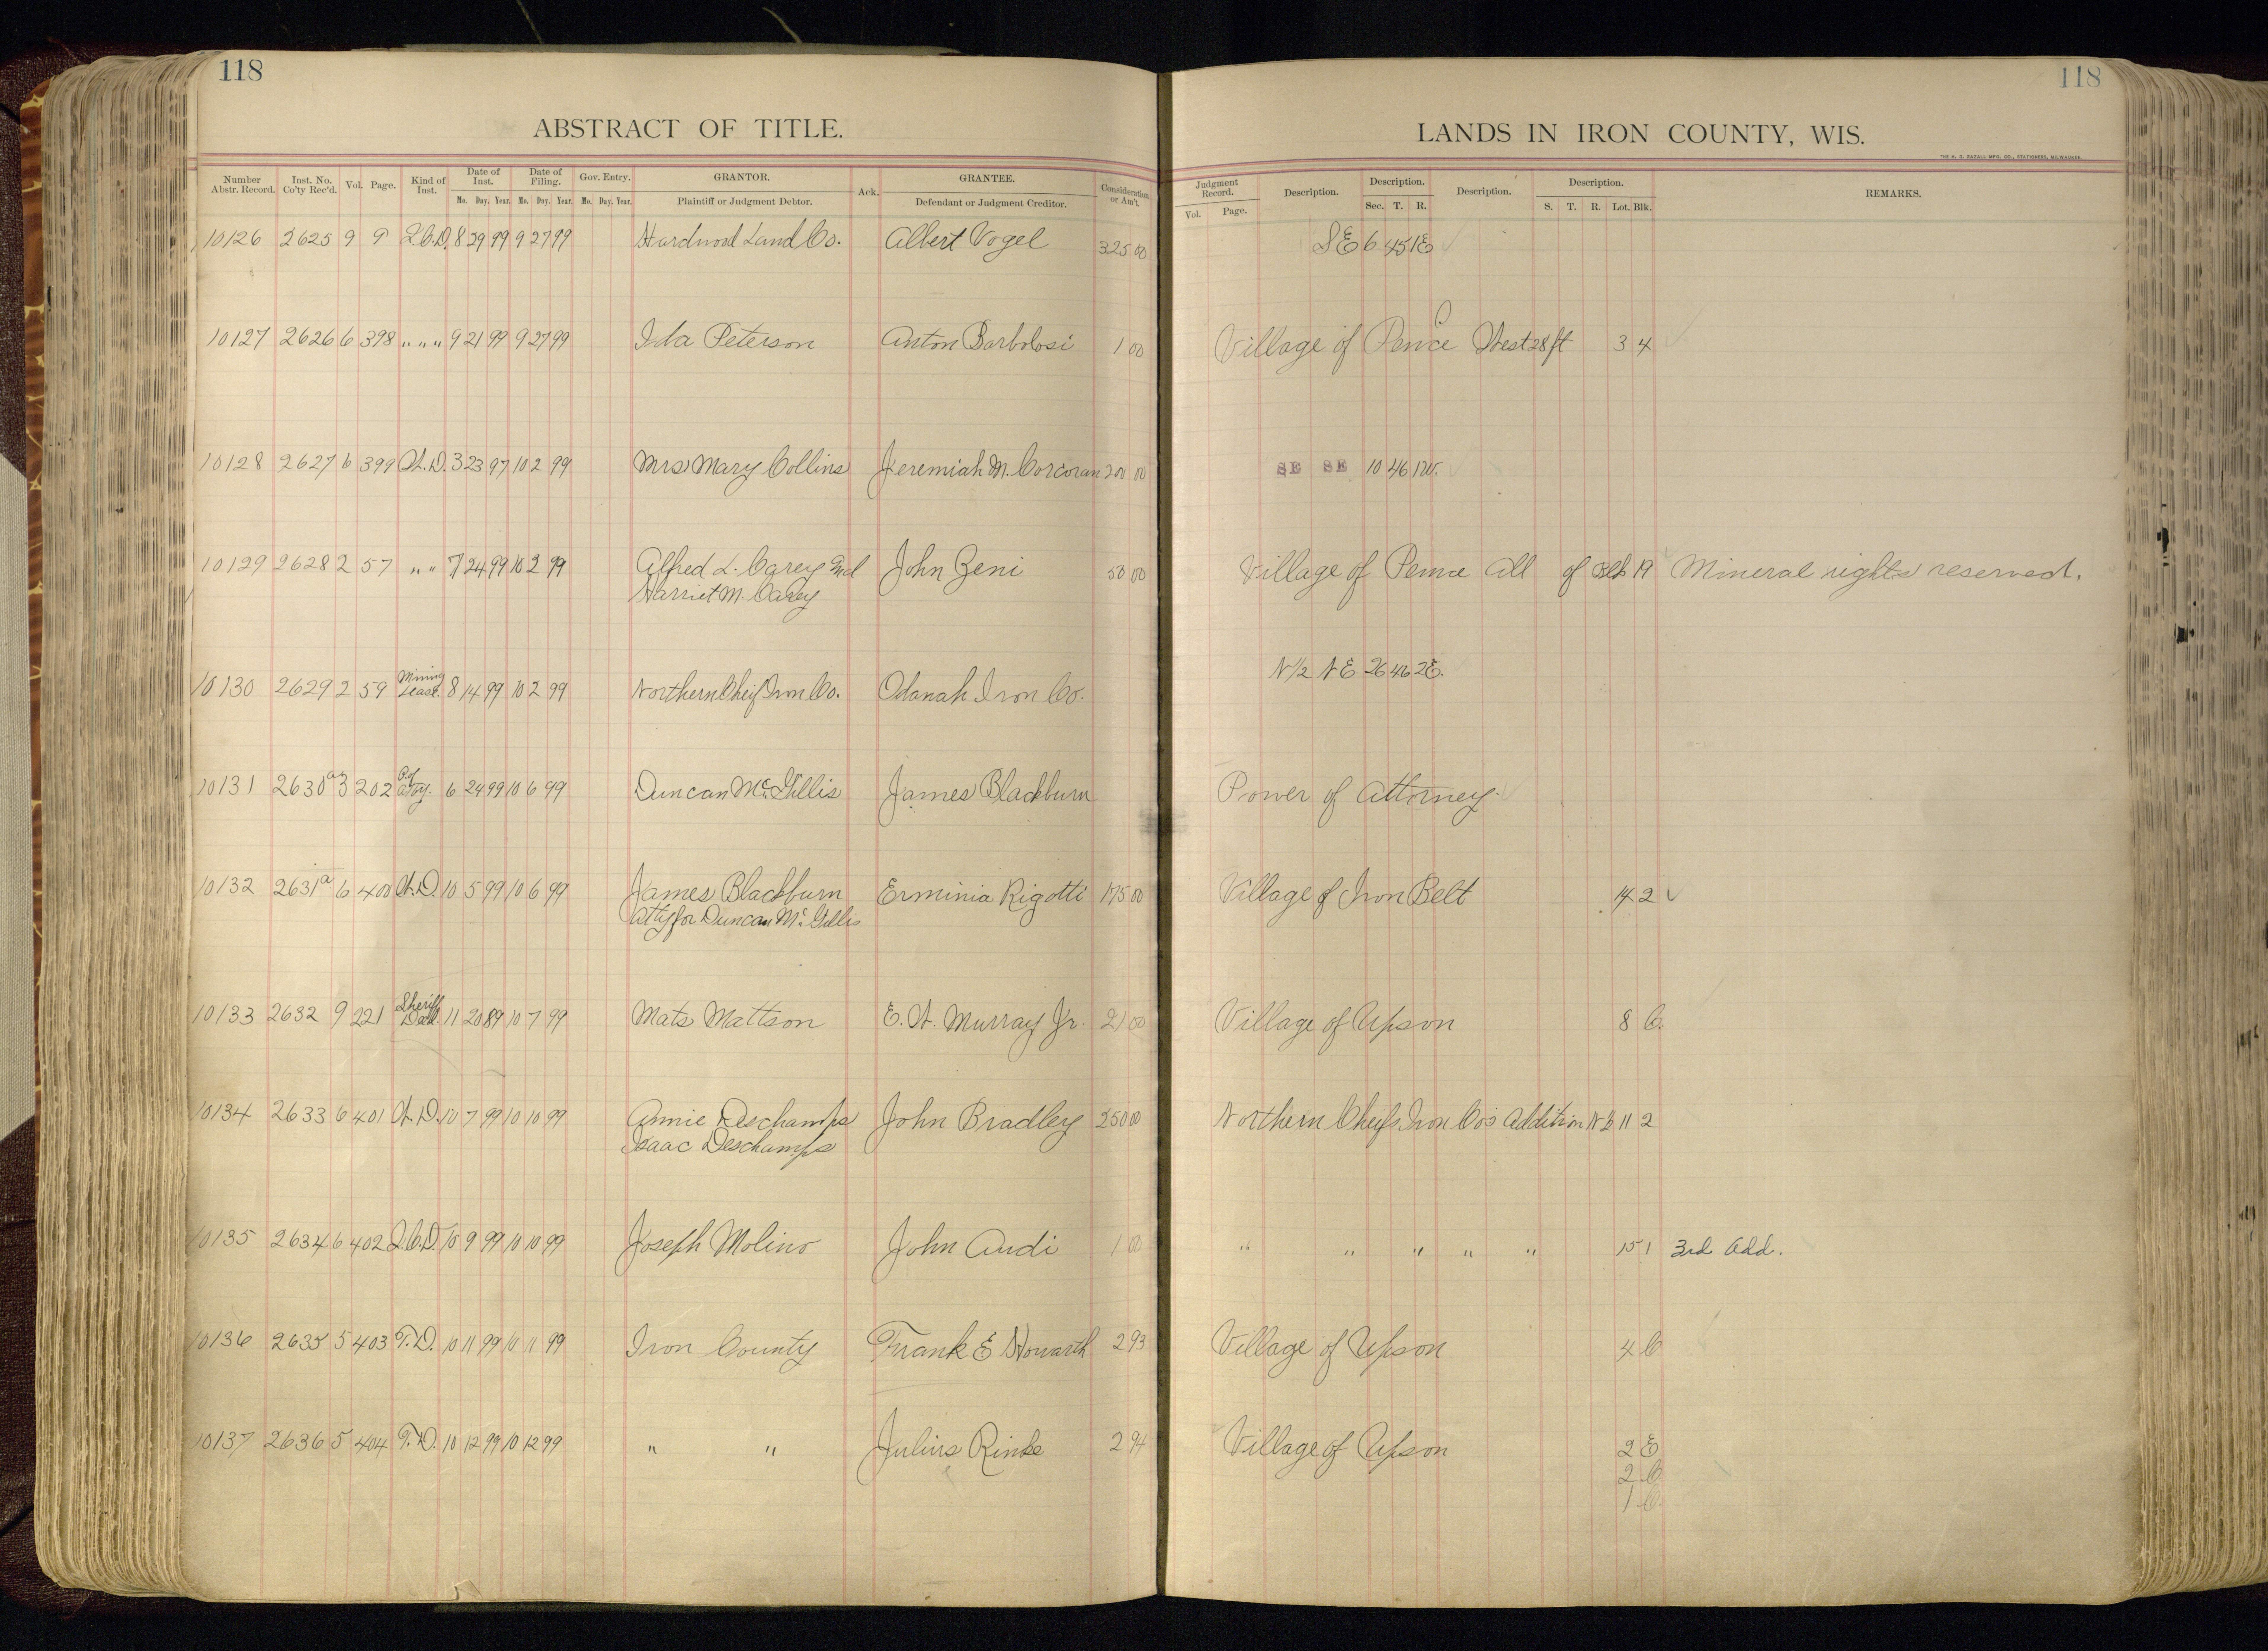 118
118
ABSTRACT OF TITLE.
LANDS IN IRON COUNTY, WIS.
THE H. G. RAZALL MFG. CO., STATIONERS, MILWAUKEE.
Number Abstr. Record. Inst. No. Co'ty Rec'd. Vol. Page. Kind of Inst. Date of Inst. Mo. Day. Year. Date of Filing. Mo. Day. Year. Gov. Entry. Mo. Day. Year. GRANTOR. Plaintiff or Judgment Debtor. Ack. GRANTEE. Defendant or Judgment Creditor. Consideration or Am't.
Judgment Record. Vol. Page. Description. Description. Sec. T. R. Description. Description. S. T. R. Lot. Blk. REMARKS.
10126 2625 9 9 Q.C.D. 8 29 99 9 27 99 Hardwood Land Co. Albert Vogel 325 00 SE 6 45 1E
10127 2626 6 398 " " " 9 21 99 9 27 99 Ida Peterson Anton Barbolosi 1 00 Village of Pence West 28 ft 3 4
10128 2627 6 399 W.D. 3 23 97 10 2 99 Mrs Mary Collins Jeremiah M. Corcoran 200 00 SE SE 10 46 1W.
10129 2628 2 57 " " 7 24 99 10 2 99 Alfred L. Carey and John Zeni 50 00 Village of Pence All of Blk 19 Mineral rights reserved.
Harriet M. Carey
10130 2629 2 59 Mining Lease. 8 14 99 10 2 99 Northern Cheif Iron Co. Odanah Iron Co. N 1/2 NE 26 46 2E.
10131 2630 a 3 202 P. of Atty. 6 24 99 10 6 99 Duncan McGillis James Blackburn Power of Attorney.
10132 2631 a 6 400 W.D. 10 5 99 10 6 99 James Blackburn Erminia Rigotti 175 00 Village of Iron Belt 14 2
Atty for Duncan McGillis
10133 2632 9 221 Sheriff Deed. 11 20 89 10 7 99 Mats Mattson E. W. Murray Jr. 21 00 Village of Upson 8 C.
10134 2633 6 401 W.D. 10 7 99 10 10 99 Annie Deschamps John Bradley 250 00 Northern Cheifs Iron Co's Addition N 1/2 11 2
Isaac Deschamps
10135 2634 6 402 Q.C.D. 10 9 99 10 10 99 Joseph Molino John Audi 1 00 " " " " " 15 1 3rd Add.
10136 2635 5 403 T.D. 10 11 99 10 11 99 Iron County Frank E Howarth 2 93 Village of Upson 4 C
10137 2636 5 404 T.D. 10 12 99 10 12 99 " " Julius Rinke 2 94 Village of Upson 2 E
2 C
1 C.